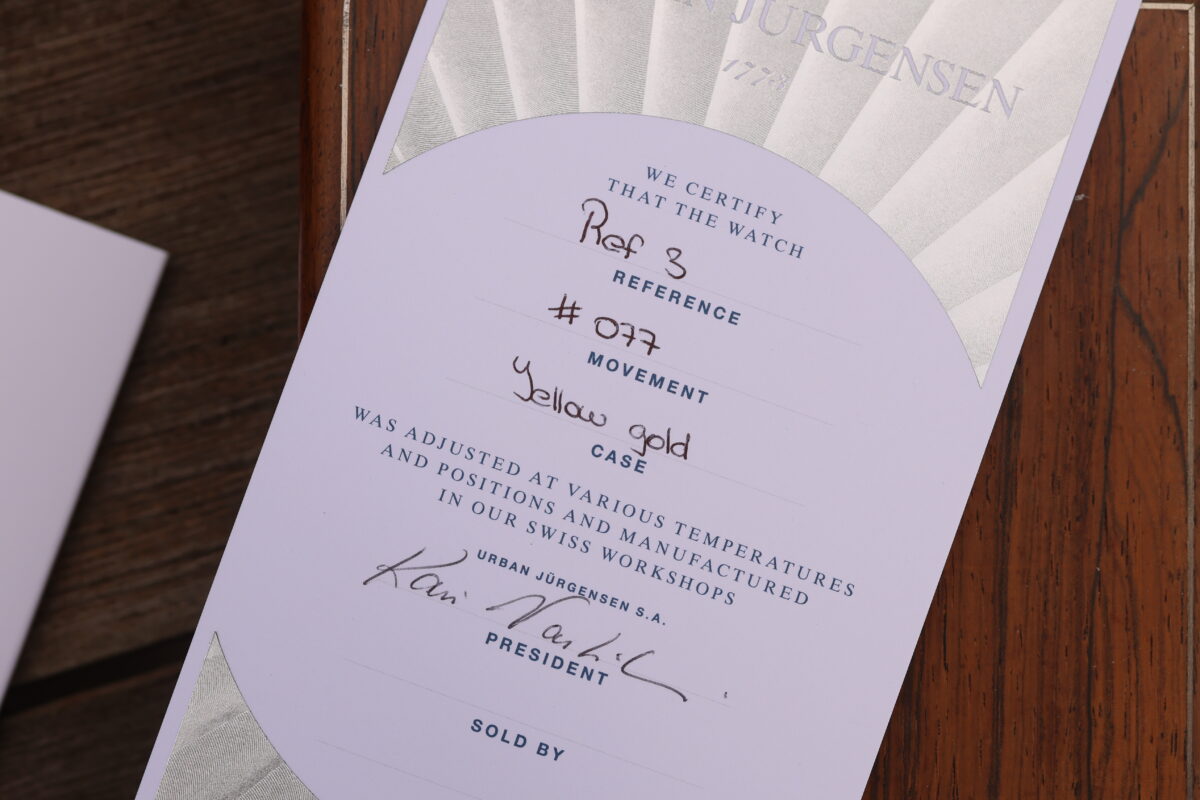 JÜRGENSEN
1773
WE CERTIFY
THAT THE WATCH
Ref 3
REFERENCE
# 077
MOVEMENT
Yellow gold
CASE
WAS ADJUSTED AT VARIOUS TEMPERATURES
AND POSITIONS AND MANUFACTURED
IN OUR SWISS WORKSHOPS
URBAN JÜRGENSEN S.A.
Kari
PRESIDENT
SOLD BY